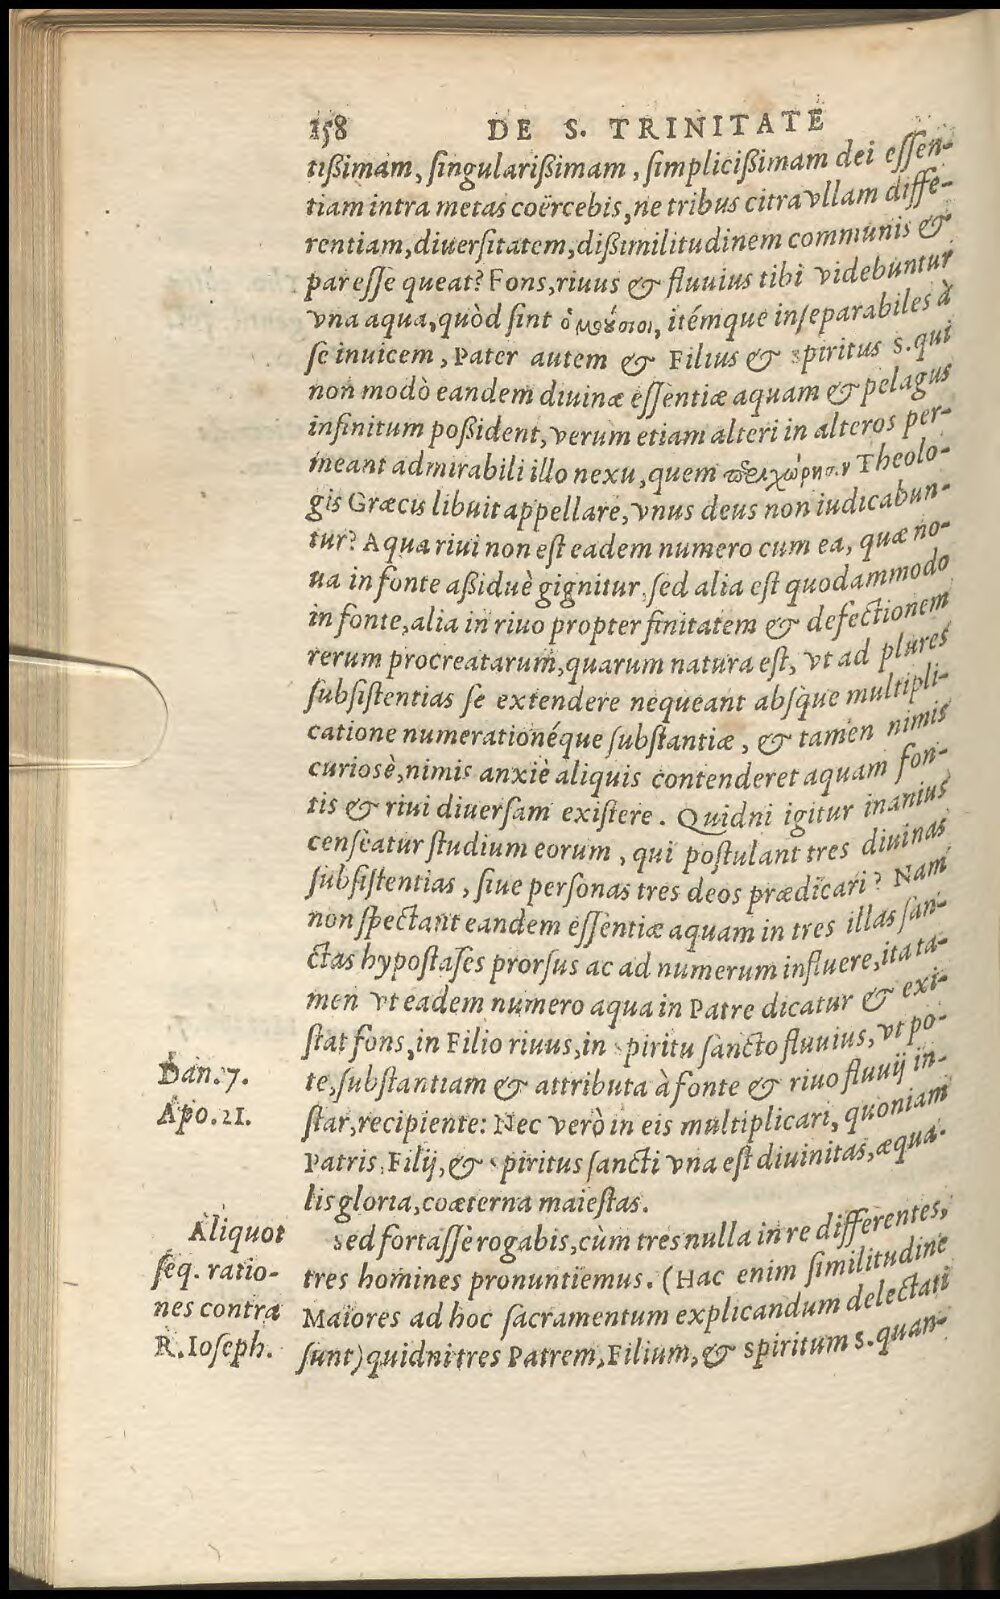 158 DE S. TRINITATE
tißimam, ſingularißimam, ſimplicißimam dei eſſen-
tiam intra metas coërcebis, ne tribus citra vllam diffe-
rentiam, diuerſitatem, dißimilitudinem communis &
par eſſe queat? Fons, riuus & fluuius tibi videbuntur
vna aqua, quòd ſint ὁμούσιοι, itémque inſeparabiles à
ſe inuicem, Pater autem & Filius & Spiritus S. qui
non modò eandem diuinæ eſſentiæ aquam & pelagus
infinitum poßident, verum etiam alteri in alteros per-
meant admirabili illo nexu, quem περιχώρησιν Theolo-
gis Græcis libuit appellare, vnus deus non iudicabun-
tur? Aqua riui non eſt eadem numero cum ea, quæ no-
ua in fonte aßiduè gignitur, ſed alia eſt quodammodo
in fonte, alia in riuo propter finitatem & defectionem
rerum procreatarum, quarum natura eſt, vt ad plures
ſubſiſtentias ſe extendere nequeant abſque multipli-
catione numerationéque ſubſtantiæ, & tamen nimis
curiosè, nimis anxiè aliquis contenderet aquam fon-
tis & riui diuerſam exiſtere. Quidni igitur inanius
cenſeatur ſtudium eorum, qui poſtulant tres diuinas
ſubſiſtentias, ſiue perſonas tres deos prædicari? Nam
non ſpectant eandem eſſentiæ aquam in tres illas ſan-
ctas hypoſtaſes prorſus ac ad numerum influere, ita ta-
men vt eadem numero aqua in Patre dicatur & exi-
ſtat fons, in Filio riuus, in Spiritu ſancto fluuius, vt po-
Dan. 7.
te, ſubſtantiam & attributa à fonte & riuo fluuij in-
Apo. 21.
ſtar, recipiente: Nec verò in eis multiplicari, quoniam
Patris, Filij, & Spiritus ſancti vna eſt diuinitas, æqua-
lis gloria, coæterna maieſtas.
Aliquot
ſeq. ratio-
nes contra
R. Ioſeph.
Sed fortaſſè rogabis, cùm tres nulla in re differentes,
tres homines pronuntiemus. (Hac enim ſimilitudine
Maiores ad hoc ſacramentum explicandum delectati
ſunt) quidni tres Patrem, Filium, & Spiritum S. quan-